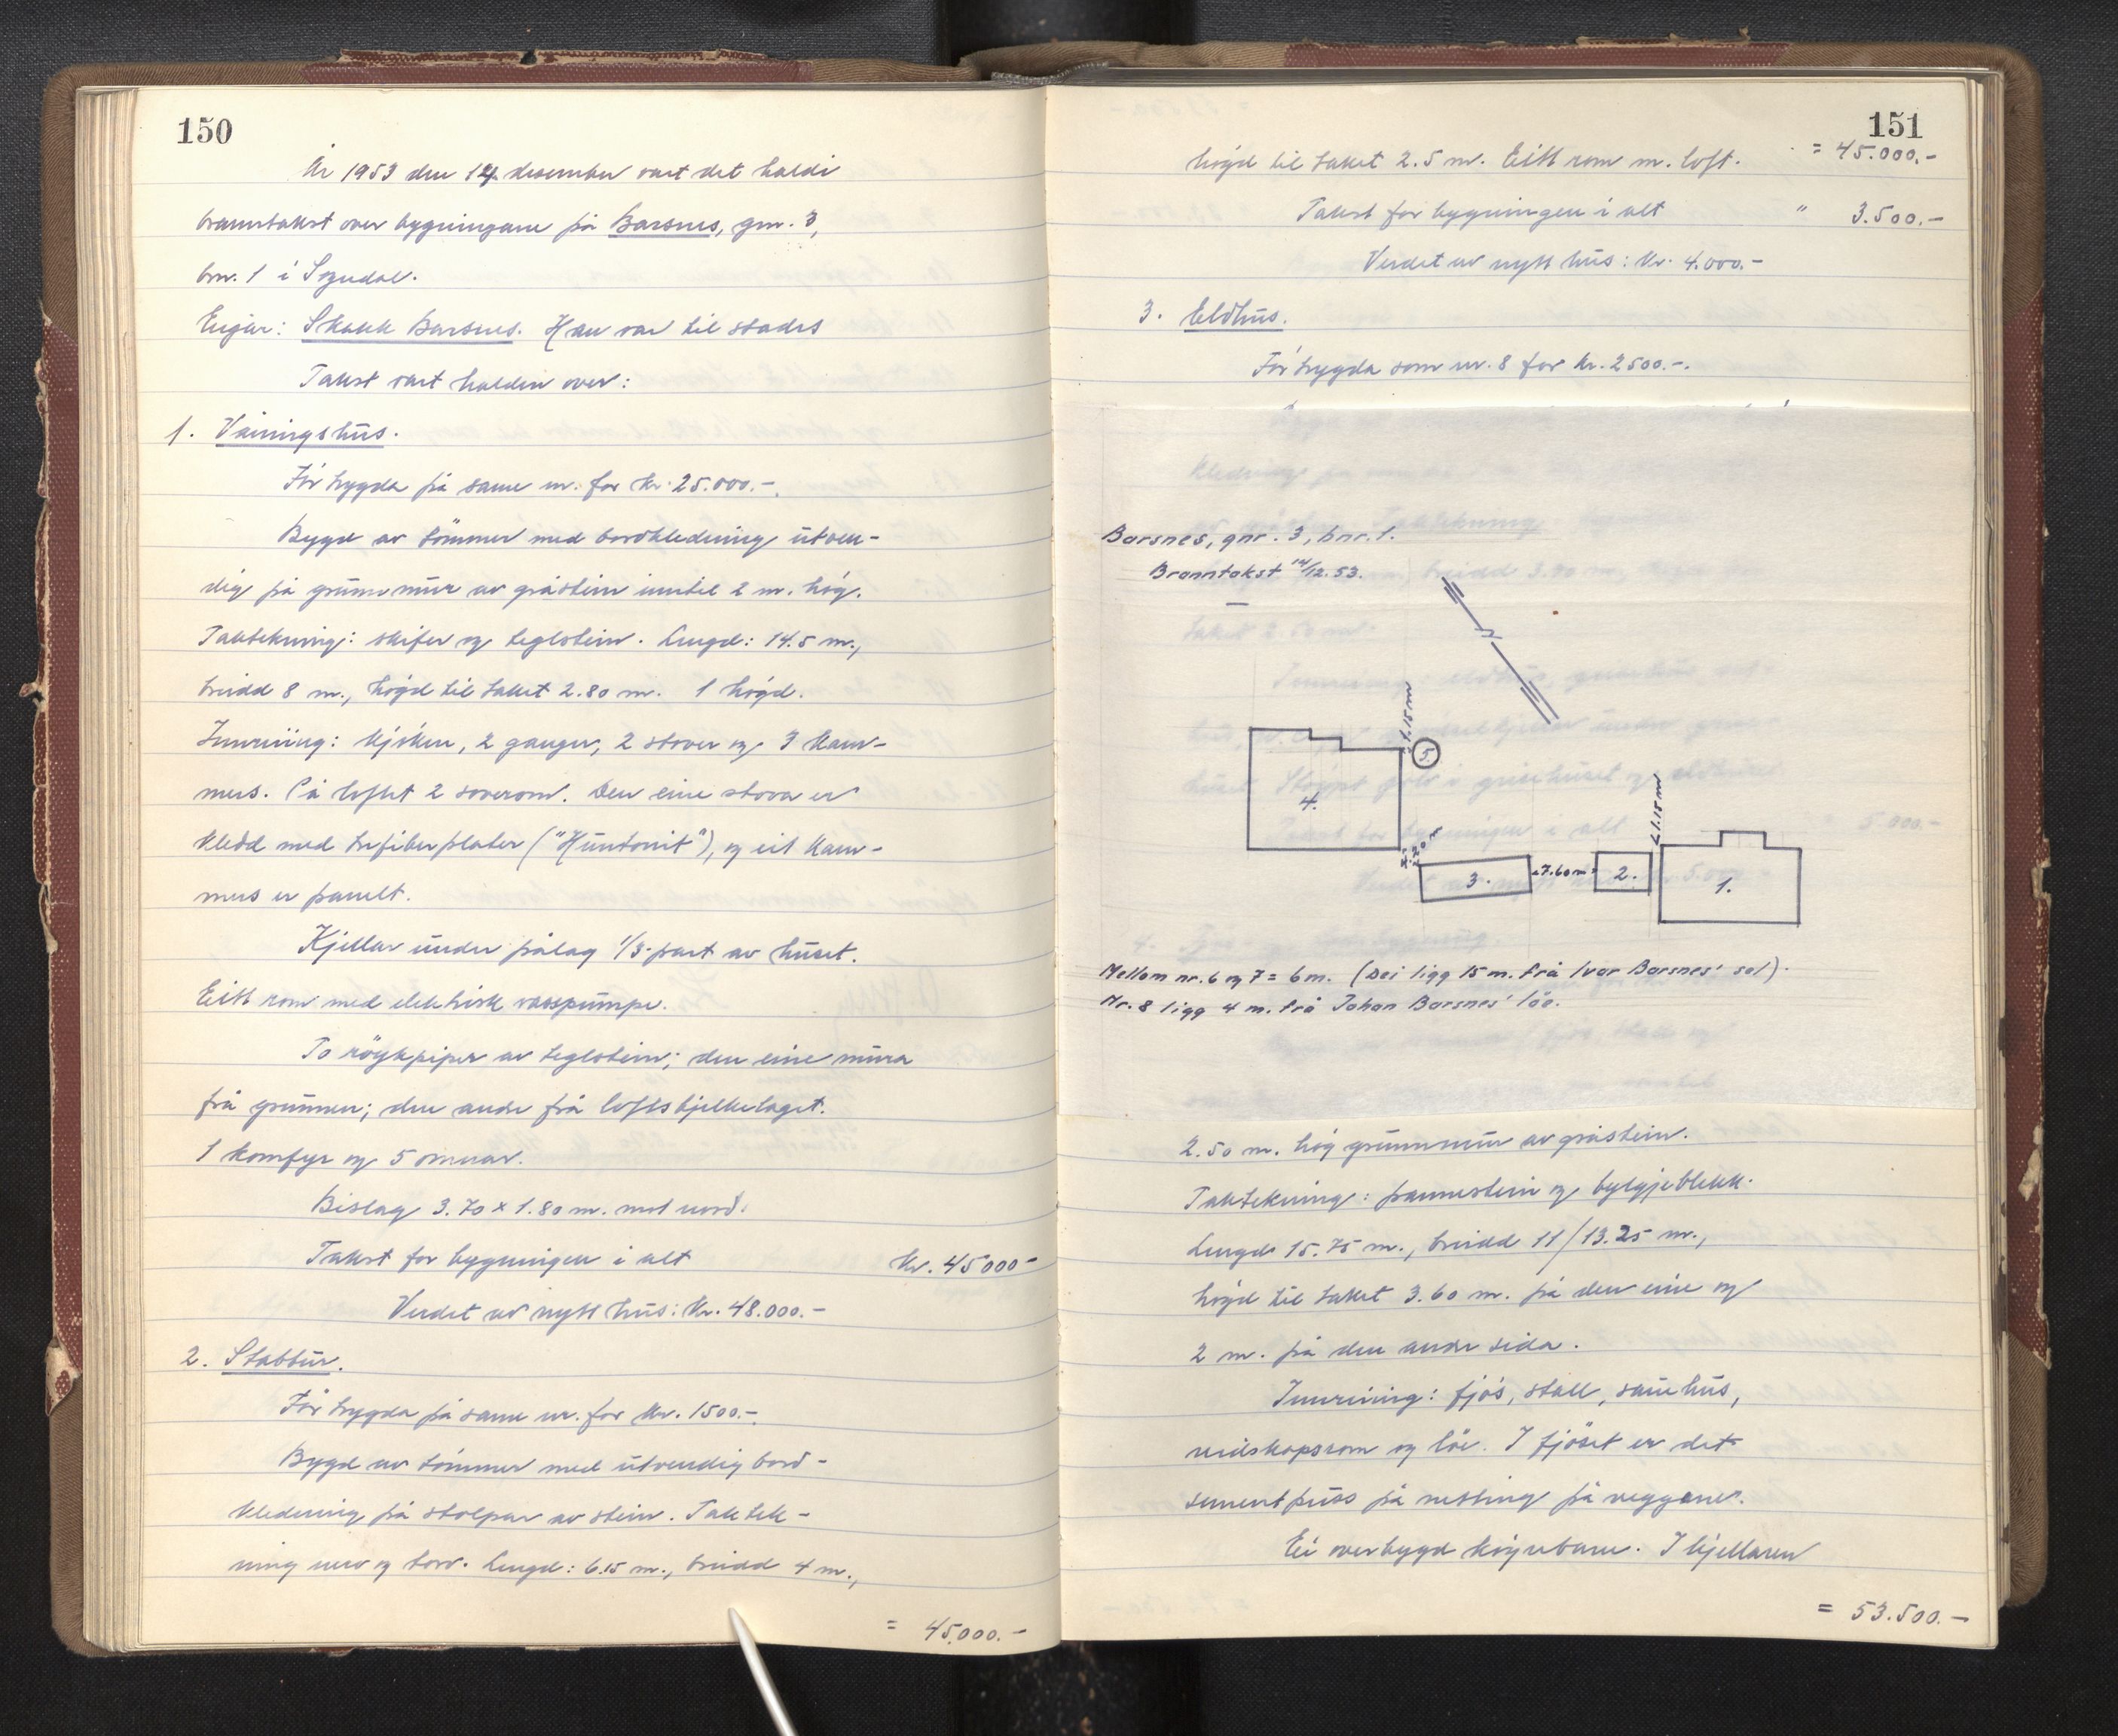 150
År 1953 den 14. desember vart det haldi
branntakst over bygningane på Barsnes, gnr. 3,
bnr. 1 i Sogndal.
Eigar: Skakk Barsnes. Han var til stades
Takst vart halden over:
1. Våningshus.
Før trygda på same nr. for kr. 25.000.-.
Bygd av tömmer med bordkledning utven-
dig på grunnmur av gråstein inntil 2 m. høg.
Taktekning: skifer og teglstein. Lengd: 14.5 m.,
breidd 8 m., høgd til taket 2.80 m. 1 høgd.
Innreiing: kjøken, 2 ganger, 2 stover og 3 kam-
mers. På loftet 2 soverom. Den eine stova er
kledd med trefiberplater ("Huntonit"), og eit kam-
mers er panelt.
Kjellar under pålag 1/3-part av huset.
Eitt rom med elektrisk vasspumpe.
To röykpiper av teglstein; den eine mura
frå grunnen; den andre frå loftsbjelkelaget.
1 komfyr og 5 omnar.
Bislag 3.70 x 1.80 m. mot nord.
Takst for bygningen i alt Kr. 45000-
Verdet av nytt hus: Kr. 48.000.-
2. Stabbur.
Før trygda på same nr. for kr. 1500.-.
Bygd av tömmer med utvendig bord-
kledning på stolpar av stein. Taktek-
ning never og torv. Lengd: 6.15 m., breidd 4 m.,
= 45.000.-
151
høgd til taket 2.5 m. Eitt rom m. loft. = 45.000.-
Takst for bygningen i alt " 3.500.-
Verdet av nytt hus: Kr. 4.000.-
3. Eldhus.
Før trygda som nr. 8 for kr. 2500.-.
Barsnes, gnr. 3, bnr. 1.
Branntakst 14/12.53.
N
1.15 m
5.
4.
4.20 m
3.
7.60 m
2.
1.15 m
1.
Mellom nr. 6 og 7 = 6 m. (Dei ligg 15 m. frå Ivar Barsnes' sel).
Nr. 8 ligg 4 m. frå Johan Barsnes' löe.
2.50 m. høg grunnmur av gråstein.
Taktekning: pannestein og bylgjeblekk.
Lengd 15.75 m., breidd 11/13.25 m.,
høgd til taket 3.60 m. på den eine og
2 m. på den andre sida.
Innreiing: fjøs, stall, sauehus,
reidskapsrom og löe. I fjöset er det
sementpuss på netting på veggane.
Ei overbygd køyrebru. I kjellaren
= 53.500.-